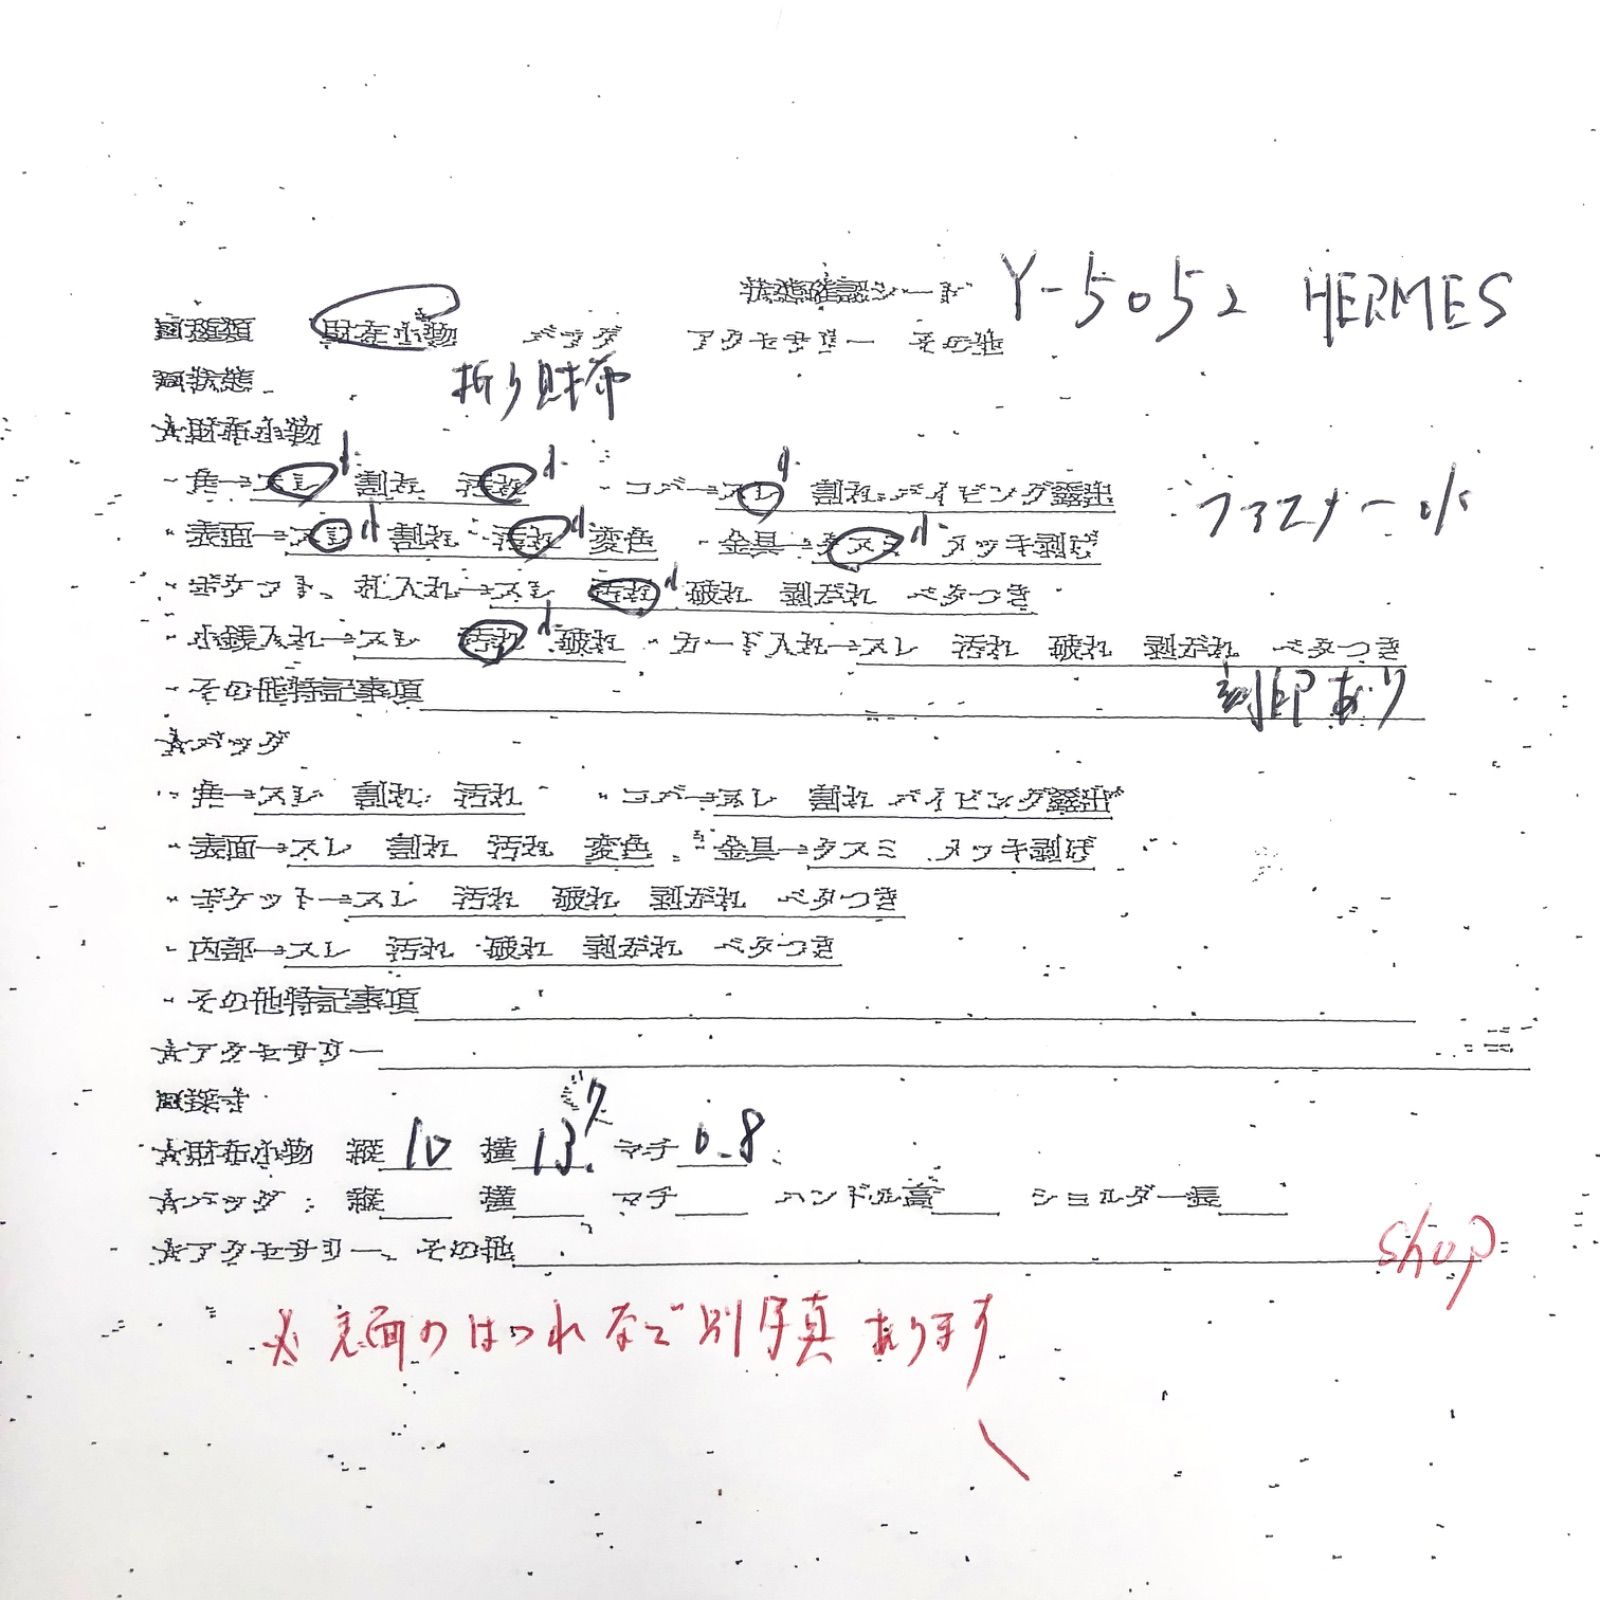 状態確認シート Y-5052 HERMES
□種類 財布小物 バッグ アクセサリー その他
□状態 折り財布
☆財布小物
・角→スレ 割れ 汚れ ・コバ→スレ 割れ パイピング露出 ファスナー
・表面→スレ 割れ 汚れ 変色 ・金具→クスミ メッキ剥げ
・ポケット、札入れ→スレ 汚れ 破れ 剥がれ ベタつき
・小銭入れ→スレ 汚れ 破れ ・カード入れ→スレ 汚れ 破れ 剥がれ ベタつき
・その他特記事項 刻印あり
☆バッグ
・角→スレ 割れ 汚れ ・コバ→スレ 割れ パイピング露出
・表面→スレ 割れ 汚れ 変色 ・金具→クスミ メッキ剥げ
・ポケット→スレ 汚れ 破れ 剥がれ ベタつき
・内部→スレ 汚れ 破れ 剥がれ ベタつき
・その他特記事項
☆アクセサリー
□採寸
☆財布小物 縦 10 横 13. マチ 0.8
☆バッグ 縦 横 マチ ハンドル高 ショルダー長
☆アクセサリー、その他
shop
※表面のほつれなど別写真あります